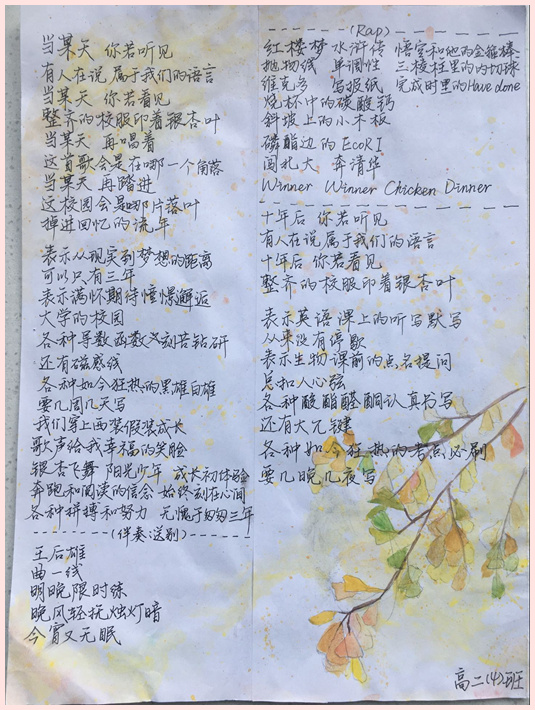 当某天 你若听见
有人在说 属于我们的语言
当某天 你若看见
整齐的校服印着银杏叶
当某天 再唱着
这首歌会是在哪一个角落
当某天 再踏进
这校园会是哪片落叶
掉进回忆的流年
表示从现实到梦想的距离
可以只有三年
表示满怀期待憧憬邂逅
大学的校园
各种导数函数又刻苦钻研
还有磁感线
各种如今狂热的黑雄白雄
要几周几天写
我们穿上西装假装成长
歌声给我幸福的笑脸
银杏飞舞 阳光少年 成长初体验
奔跑和阅读的信念 始终刻在心间
各种拼搏和努力 无愧于匆匆三年
(伴奏:送别)
王后雄
曲一线
明晚限时练
晚风轻抚烛灯暗
今宵又无眠
(Rap)
红楼梦 水浒传 悟空和他的金箍棒
抛物线 单调性 三棱柱里的内切球
维克多 写报纸 完成时里的Have done
烧杯中的碳酸钙
斜坡上的小木板
磷酯边的EcoRI
闯北大 奔清华
Winner Winner Chicken Dinner
十年后 你若听见
有人在说 属于我们的语言
十年后 你若看见
整齐的校服印着银杏叶
表示英语课上的听写默写
从来没有停歇
表示生物课前的点名提问
总扣人心弦
各种酸酯醛酮认真书写
还有大π键
各种如今狂热的考点必刷
要几晚几夜写
高二(4)班